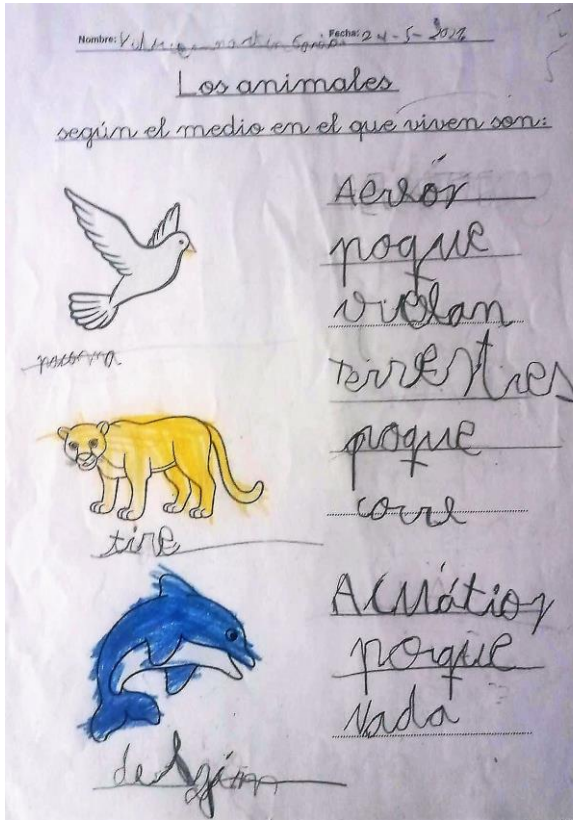 Nombre: Fecha: 24-5-2022
Los animales
según el medio en el que viven son:
Aexór
poque
vuelan
terrestres
poque
corre
tire
Acuátior
porque
Nada